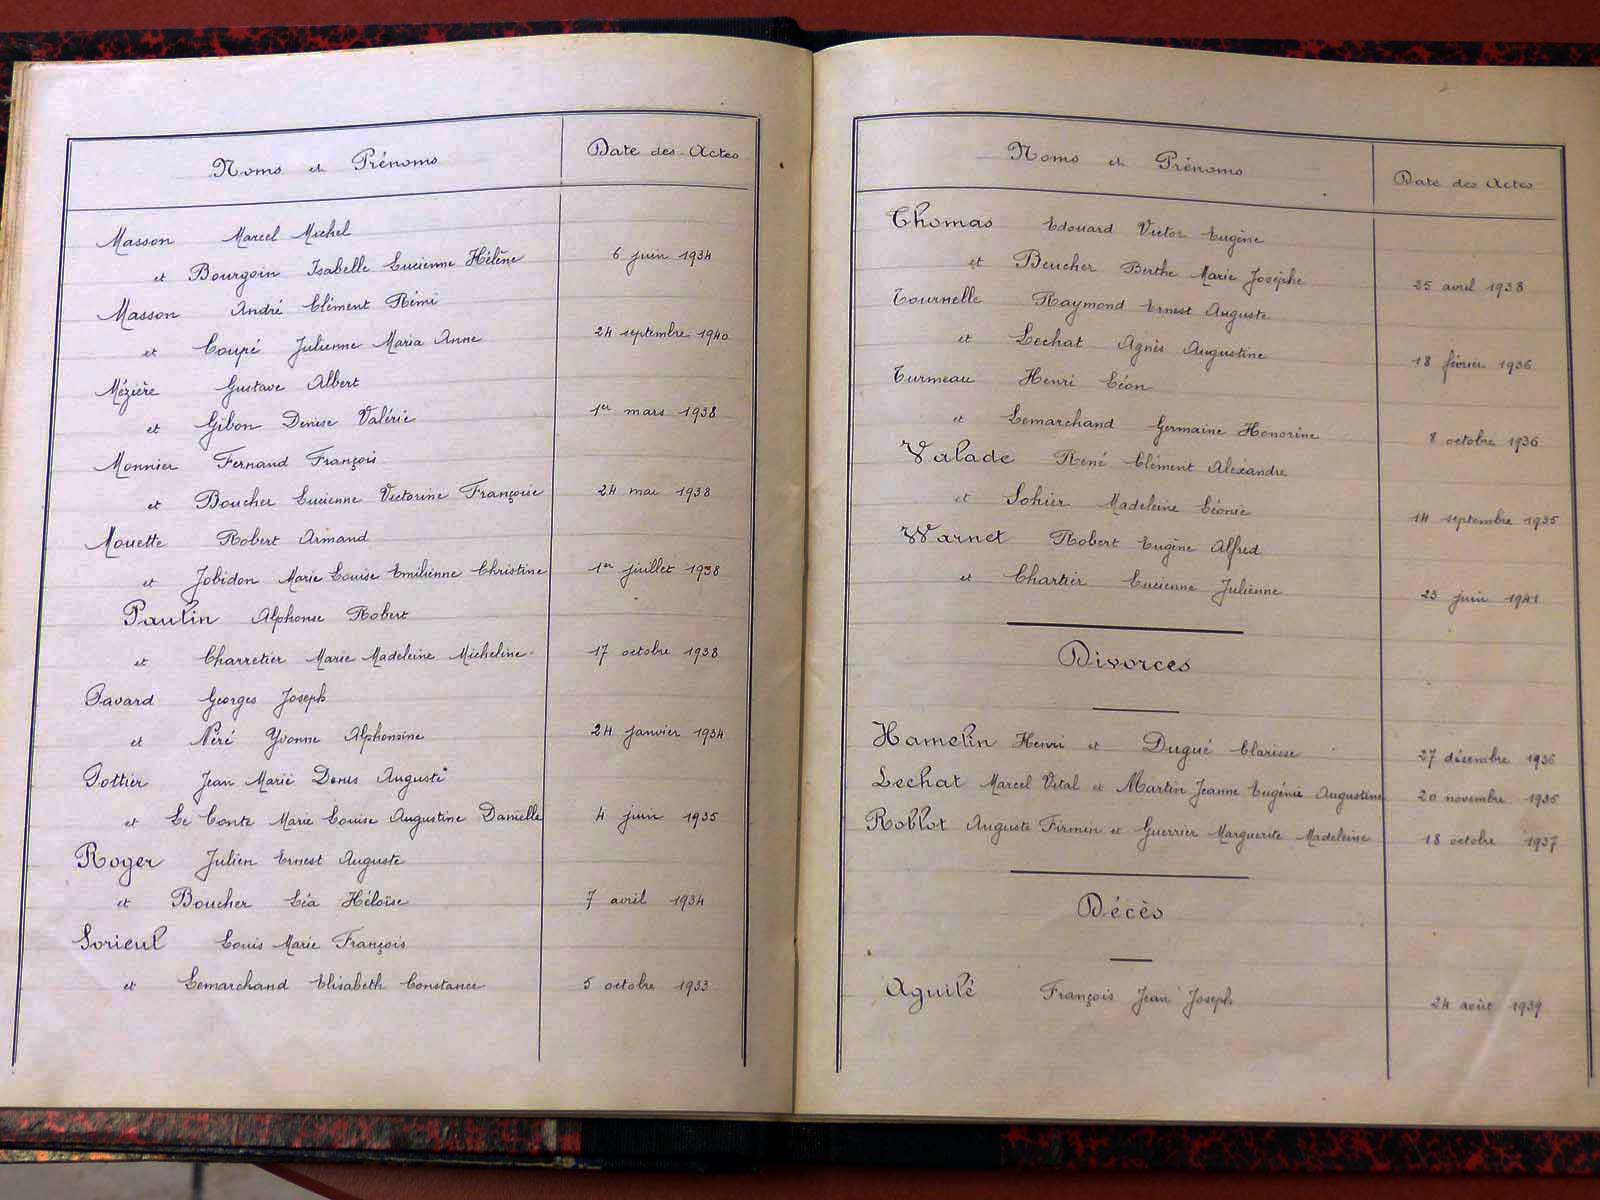 Noms et Prénoms Date des Actes
Masson Marcel Michel
et Bourgoin Isabelle Lucienne Hélène 6 juin 1934
Masson André Clément Rémi
et Coupé Julienne Maria Anne 24 septembre 1940
Mézière Gustave Albert
et Gibon Denise Valérie 1er mars 1938
Monnier Fernand François
et Boucher Lucienne Victorine Françoise 24 mai 1938
Mouette Robert Armand
et Jobidon Marie Louise Emilienne Christine 1er juillet 1938
Paulin Alphonse Robert
et Charretier Marie Madeleine Micheline 17 octobre 1938
Pavard Georges Joseph
et Néré Yvonne Alphonsine 24 janvier 1934
Pottier Jean Marie Denis Auguste
et Le Conte Marie Louise Augustine Danielle 4 juin 1935
Roger Julien Ernest Auguste
et Boucher Léa Héloïse 7 avril 1934
Sorieul Louis Marie François
et Lemarchand Elisabeth Constance 5 octobre 1933
Noms et Prénoms Date des Actes
Thomas Edouard Victor Eugène
et Beucher Berthe Marie Josèphe 25 avril 1938
Tournelle Raymond Ernest Auguste
et Lechat Agnès Augustine 18 février 1936
Turmeau Henri Léon
et Lemarchand Germaine Honorine 8 octobre 1936
Valade René Clément Alexandre
et Sohier Madeleine Léonie 14 septembre 1935
Warnet Robert Eugène Alfred
et Chartier Lucienne Julienne 23 juin 1941
Divorces
Hamelin Henri et Dugué Clarisse 27 décembre 1936
Lechat Marcel Vital et Martin Jeanne Eugénie Augustine 20 novembre 1936
Roblot Auguste Firmin et Guerrier Marguerite Madeleine 18 octobre 1937
Décès
Aguilé François Jean Joseph 24 août 1939